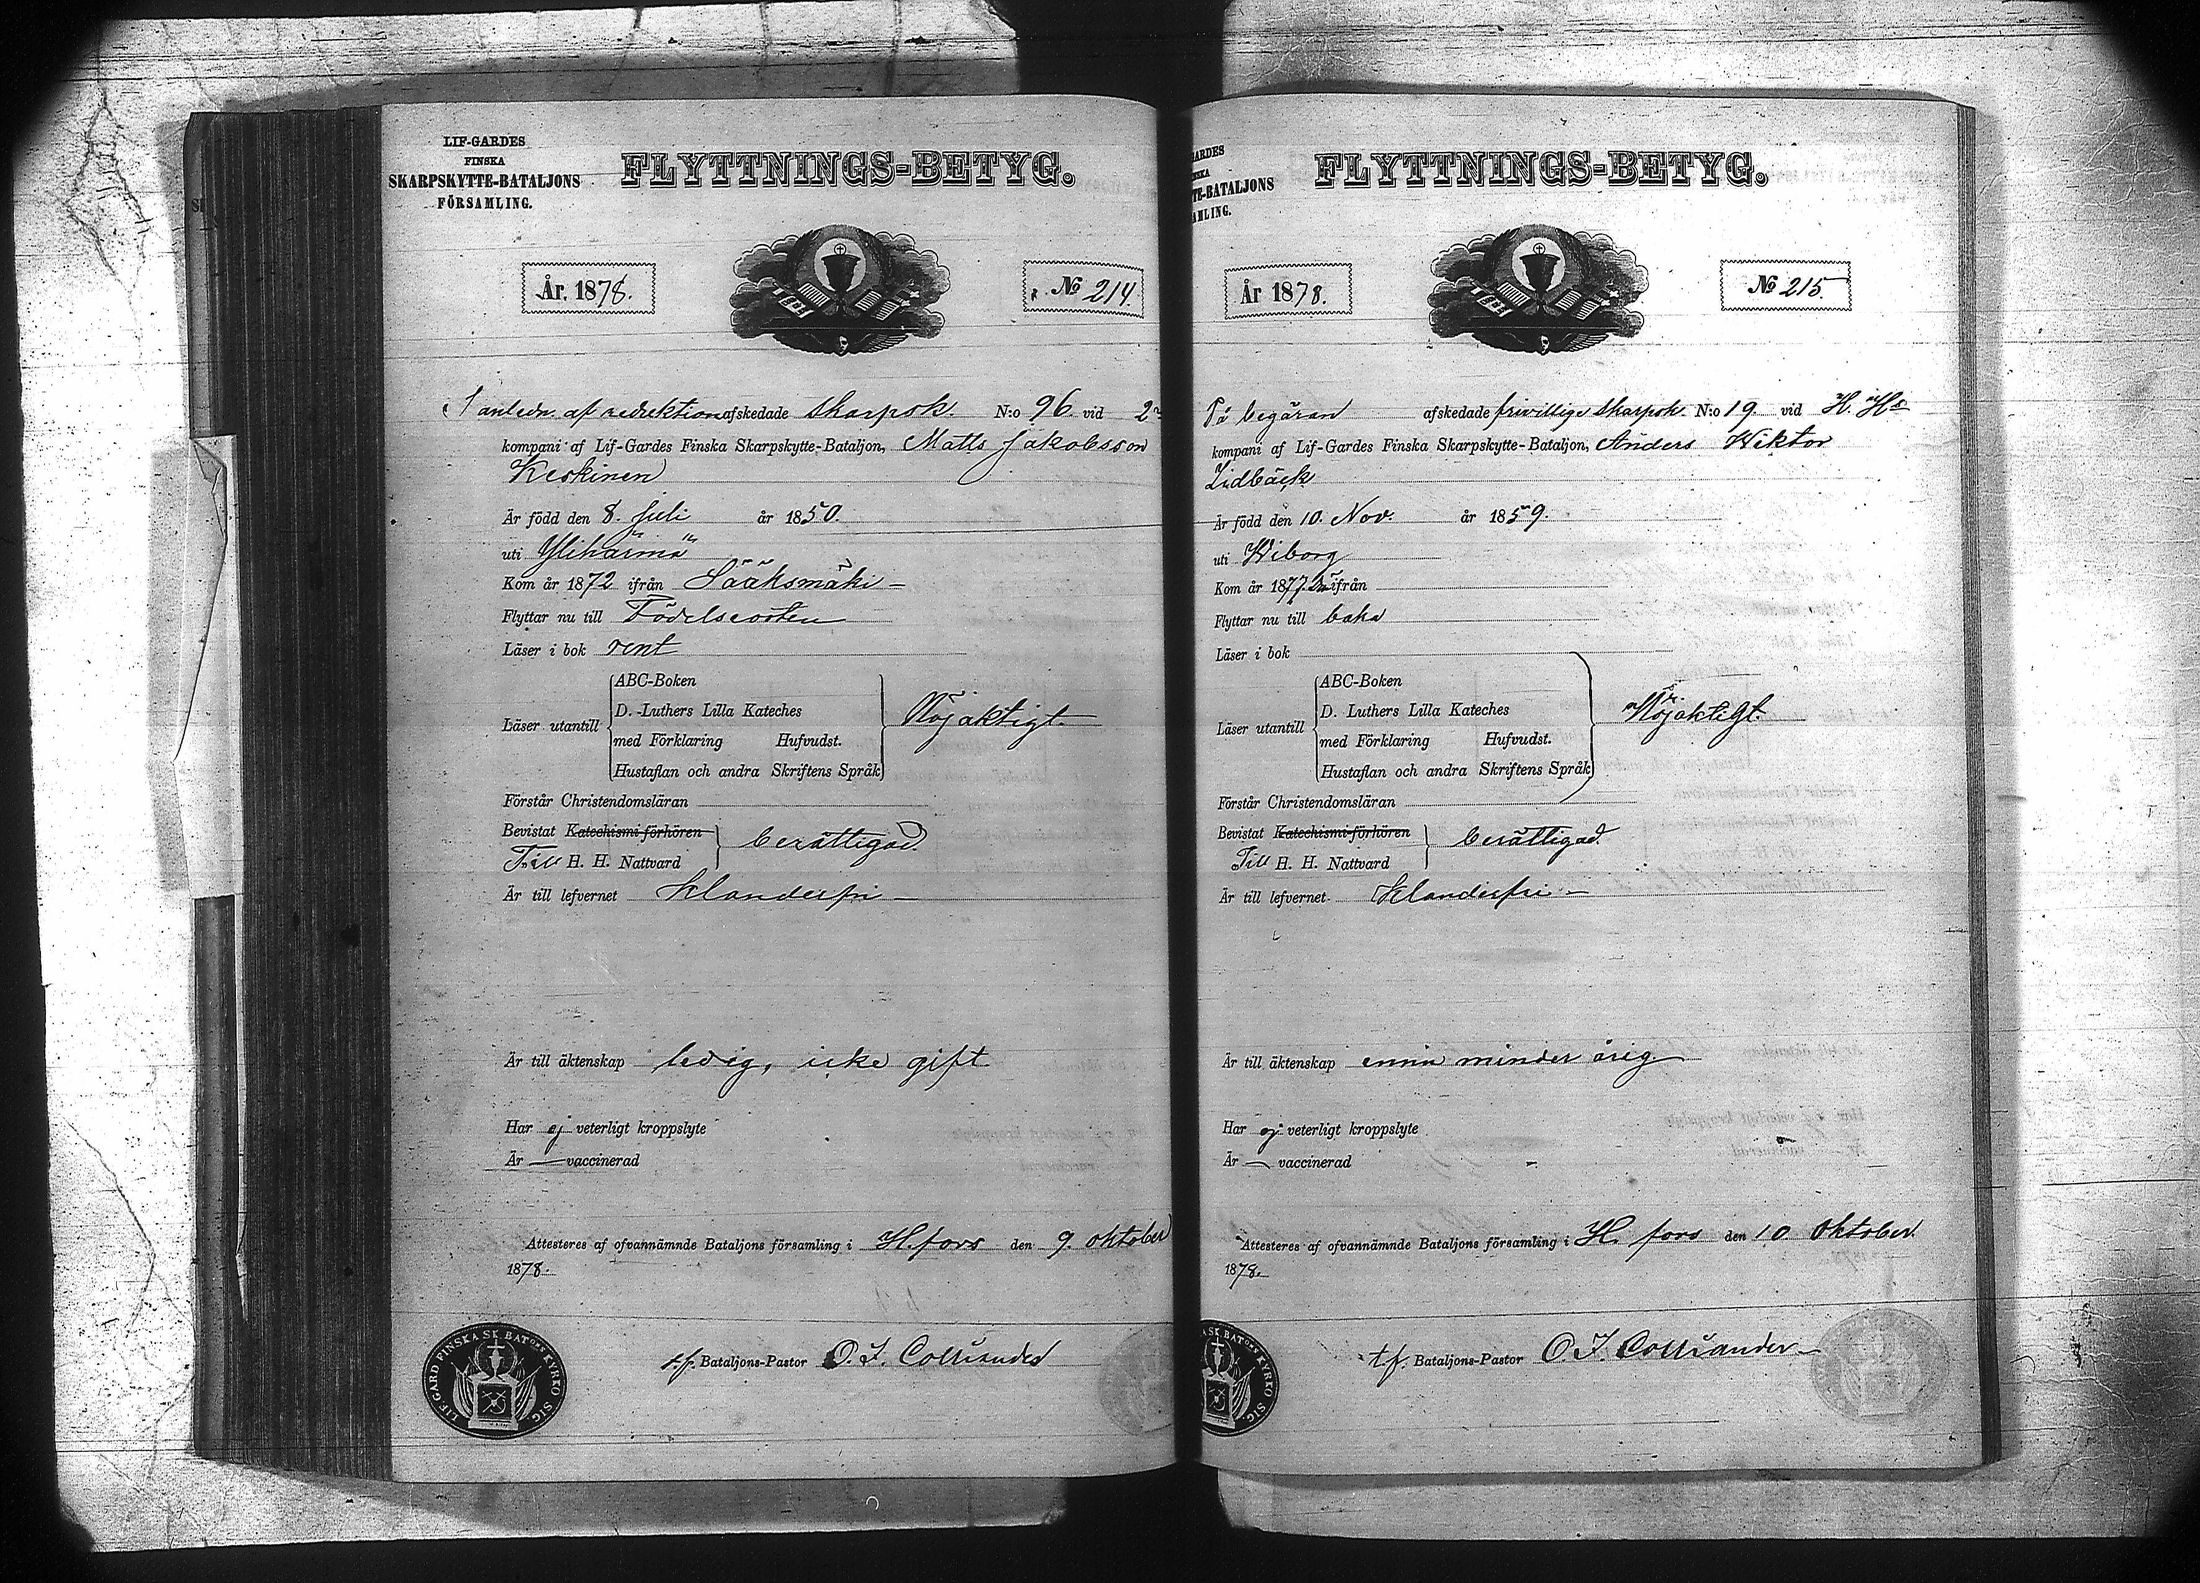 LIF-GARDES
FINSKA
SKARPSKYTTE-BATALJONS
FÖRSAMLING.
FLYTTNINGS-BETYG.
År. 1878.
No 214.
I anledn. af reduktion afskedade skarpsk. N:o 96 vid 2
kompani af Lif-Gardes Finska Skarpskytte-Bataljon, Matts Jakobsson
Keskinen
Är född den 8. Juli år 1850.
uti Ylihärmä
Kom år 1872 ifrån Sääksmäki –
Flyttar nu till Födelseorten
Läser i bok rent
Läser utantill
ABC-Boken
D. Luthers Lilla Kateches
med Förklaring Hufvudst.
Hustaflan och andra Skriftens Språk
Nöjaktigt.
Förstår Christendomsläran
Bevistat Katechismi-förhören
Till H. H. Nattvard
berättigad
Är till lefvernet Klanderfri –
Är till äktenskap ledig, icke gift
Har ej veterligt kroppslyte
Är — vaccinerad
Attesteras af ofvannämnde Bataljons församling i H.fors den 9. oktober
1878.
t.f. Bataljons-Pastor O. I. Colliander
LIF-GARD FINSKA SK. BATOES KYRKO SIG.
GARDES
SKA
TE-BATALJONS
AMLING.
FLYTTNINGS-BETYG.
År 1878.
No 215.
På begäran afskedade frivillige skarpsk. N:o 19. vid H. Hs
kompani af Lif-Gardes Finska Skarpskytte-Bataljon, Anders Wiktor
Lidbäck
Är född den 10. Nov. år 1859.
uti Wiborg
Kom år 1877 ifrån
Flyttar nu till baka
Läser i bok
Läser utantill
ABC-Boken
D. Luthers Lilla Kateches
med Förklaring Hufvudst.
Hustaflan och andra Skriftens Språk
Nöjaktigt.
Förstår Christendomsläran
Bevistat Katechismi-förhören
Till H. H. Nattvard
berättigad.
Är till lefvernet Klanderfri –
Är till äktenskap ännu minder årig
Har ej veterligt kroppslyte
Är — vaccinerad
Attesteras af ofvannämnde Bataljons församling i H. fors den 10 Oktober.
1878.
t.f. Bataljons-Pastor O. I. Colliander –
SK. BATOES KYRKO SIG.